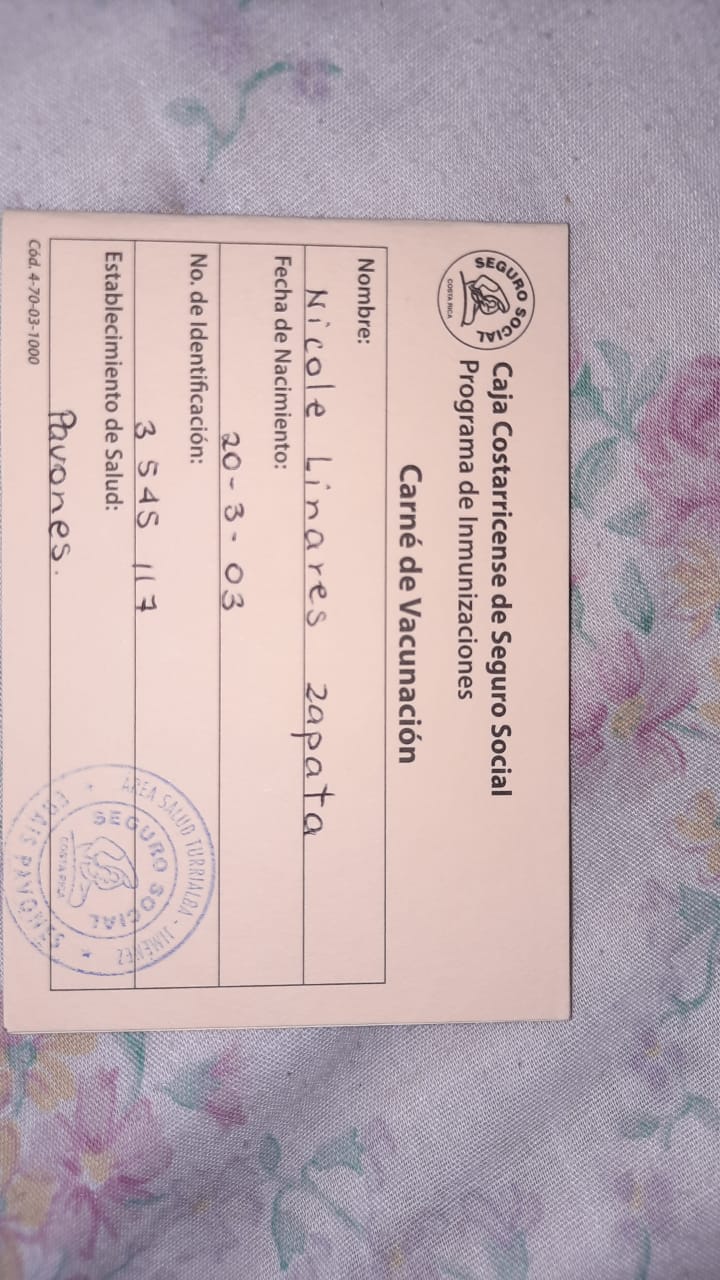 SEGURO SOCIAL
COSTA RICA
Caja Costarricense de Seguro Social
Programa de Inmunizaciones
Carné de Vacunación
Nombre:
Nicole Linares Zapata
Fecha de Nacimiento:
20-3-03
No. de Identificación:
3 545 117
Establecimiento de Salud:
Pavones.
AREA SALUD TURRIALBA - JIMÉNEZ
SEGURO SOCIAL
COSTA RICA
EBAIS PAVONES
Cód. 4-70-03-1000